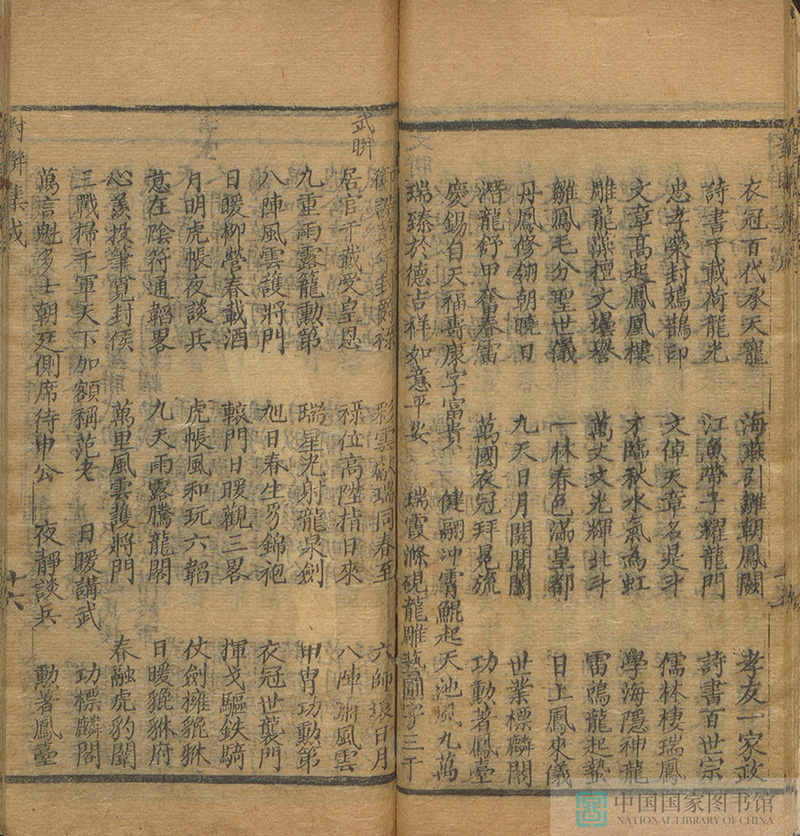 衣冠百代承天寵　海燕引雛朝鳳闕　孝友一家政
詩書千載荷龍光　江魚帶子耀龍門　詩書百世宗
忠孝榮封鵲印　文倬天章名是斗　儒林棲瑞鳳
文章高起鳳凰樓　才臨秋水氣為虹　學海隱神龍
雕龍藻裡文堪譽　萬丈文光輝北斗　雷鳴龍起蟄
雛鳳毛分聖世儀　一林春色滿皇都　日上鳳來儀
丹鳳修翎朝曉日　九天日月開閶闔　世業標麟閣
潛龍舒甲奮春雷　萬國衣冠拜冕旒　功勳著鳳臺
慶錫自天福壽康字富貴　健翮冲霄鯤起天池風九萬
瑞臻於德占祥如意平安　瑞霞滌硯龍雕藝圃字三千
武聯
封　祿　彩雲　瑞同春至　六師　日月
居官千載受皇恩　祿位高陞指日來　八陣肅風雲
九重雨露龍勳第　瑞星光射龍泉劍　甲冑功勳第
八陣風雲護將門　旭日春生　錦袍　衣冠世襲門
日暖柳營春載酒　轅門日暖觀三畧　揮戈驅鉄騎
月明虎帳夜談兵　虎帳風和玩六韜　仗劍擁貔貅
意在陰符通韜畧　九天雨露騰龍閣　日暖貔貅府
心羨投筆覓封侯　萬里風雲護將門　春融虎豹闈
三戰掃千軍天下加額稱范老　日暖講武　功標麟閣
萬言魁多士朝廷側席待申公　夜靜談兵　勳著鳳臺
對聯集成
十六
中国国家图书馆
NATIONAL LIBRARY OF CHINA